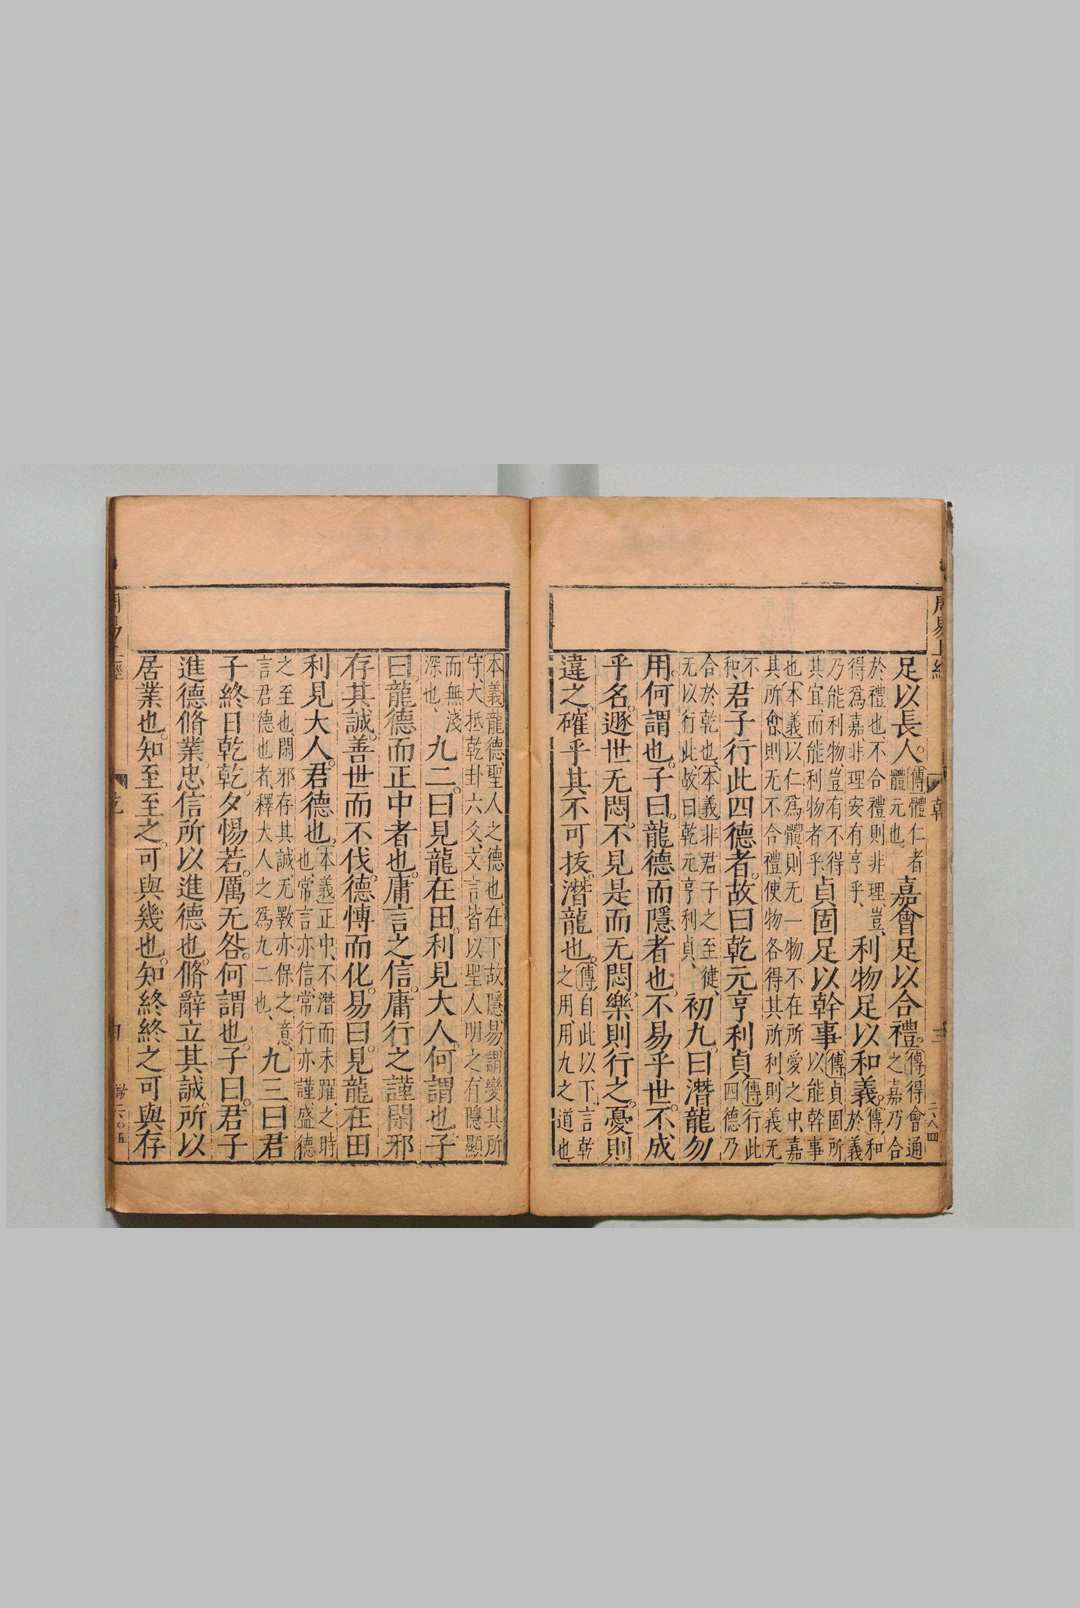 足以長人。傳體仁者體元也。嘉會足以合禮。傳得會通之嘉乃合
於禮也、不合禮則非理豈得爲嘉、非理安有亨乎、利物足以和義。傳和於義
乃能利物、豈有不得其宜、而能利物者乎、貞固足以幹事。傳貞固所以能幹事
也、本義以仁爲體、則无一物不在所愛之中、嘉其所會、則无不合禮、使物各得其所利、則義无
不和、君子行此四德者。故曰乾元亨利貞。傳行此四德乃
合於乾也、本義非君子之至健、无以行此、故曰乾元亨利貞、初九曰。潛龍勿
用。何謂也。子曰。龍德而隱者也。不易乎世。不成
乎名。遯世无悶。不見是而无悶。樂則行之。憂則
違之。確乎其不可拔。潛龍也。傳自此以下、言乾之用、用九之道也
本義龍德、聖人之德也、在下故隱、易謂變其所守、大抵乾卦六爻、文言皆以聖人明之、有隱顯
而無淺深也、九二曰。見龍在田。利見大人。何謂也。子
曰。龍德而正中者也。庸言之信。庸行之謹。閑邪
存其誠。善世而不伐。德愽而化。易曰。見龍在田。
利見大人。君德也。本義正中、不潛而未躍之時也、常言亦信、常行亦謹、盛德
之至也、閑邪存其誠、无斁亦保之意、言君德也者、釋大人之爲九二也、九三曰。君
子終日乾乾。夕惕若。厲无咎。何謂也。子曰。君子
進德脩業。忠信所以進德也。脩辭立其誠。所以
居業也。知至至之。可與幾也。知終終之。可與存